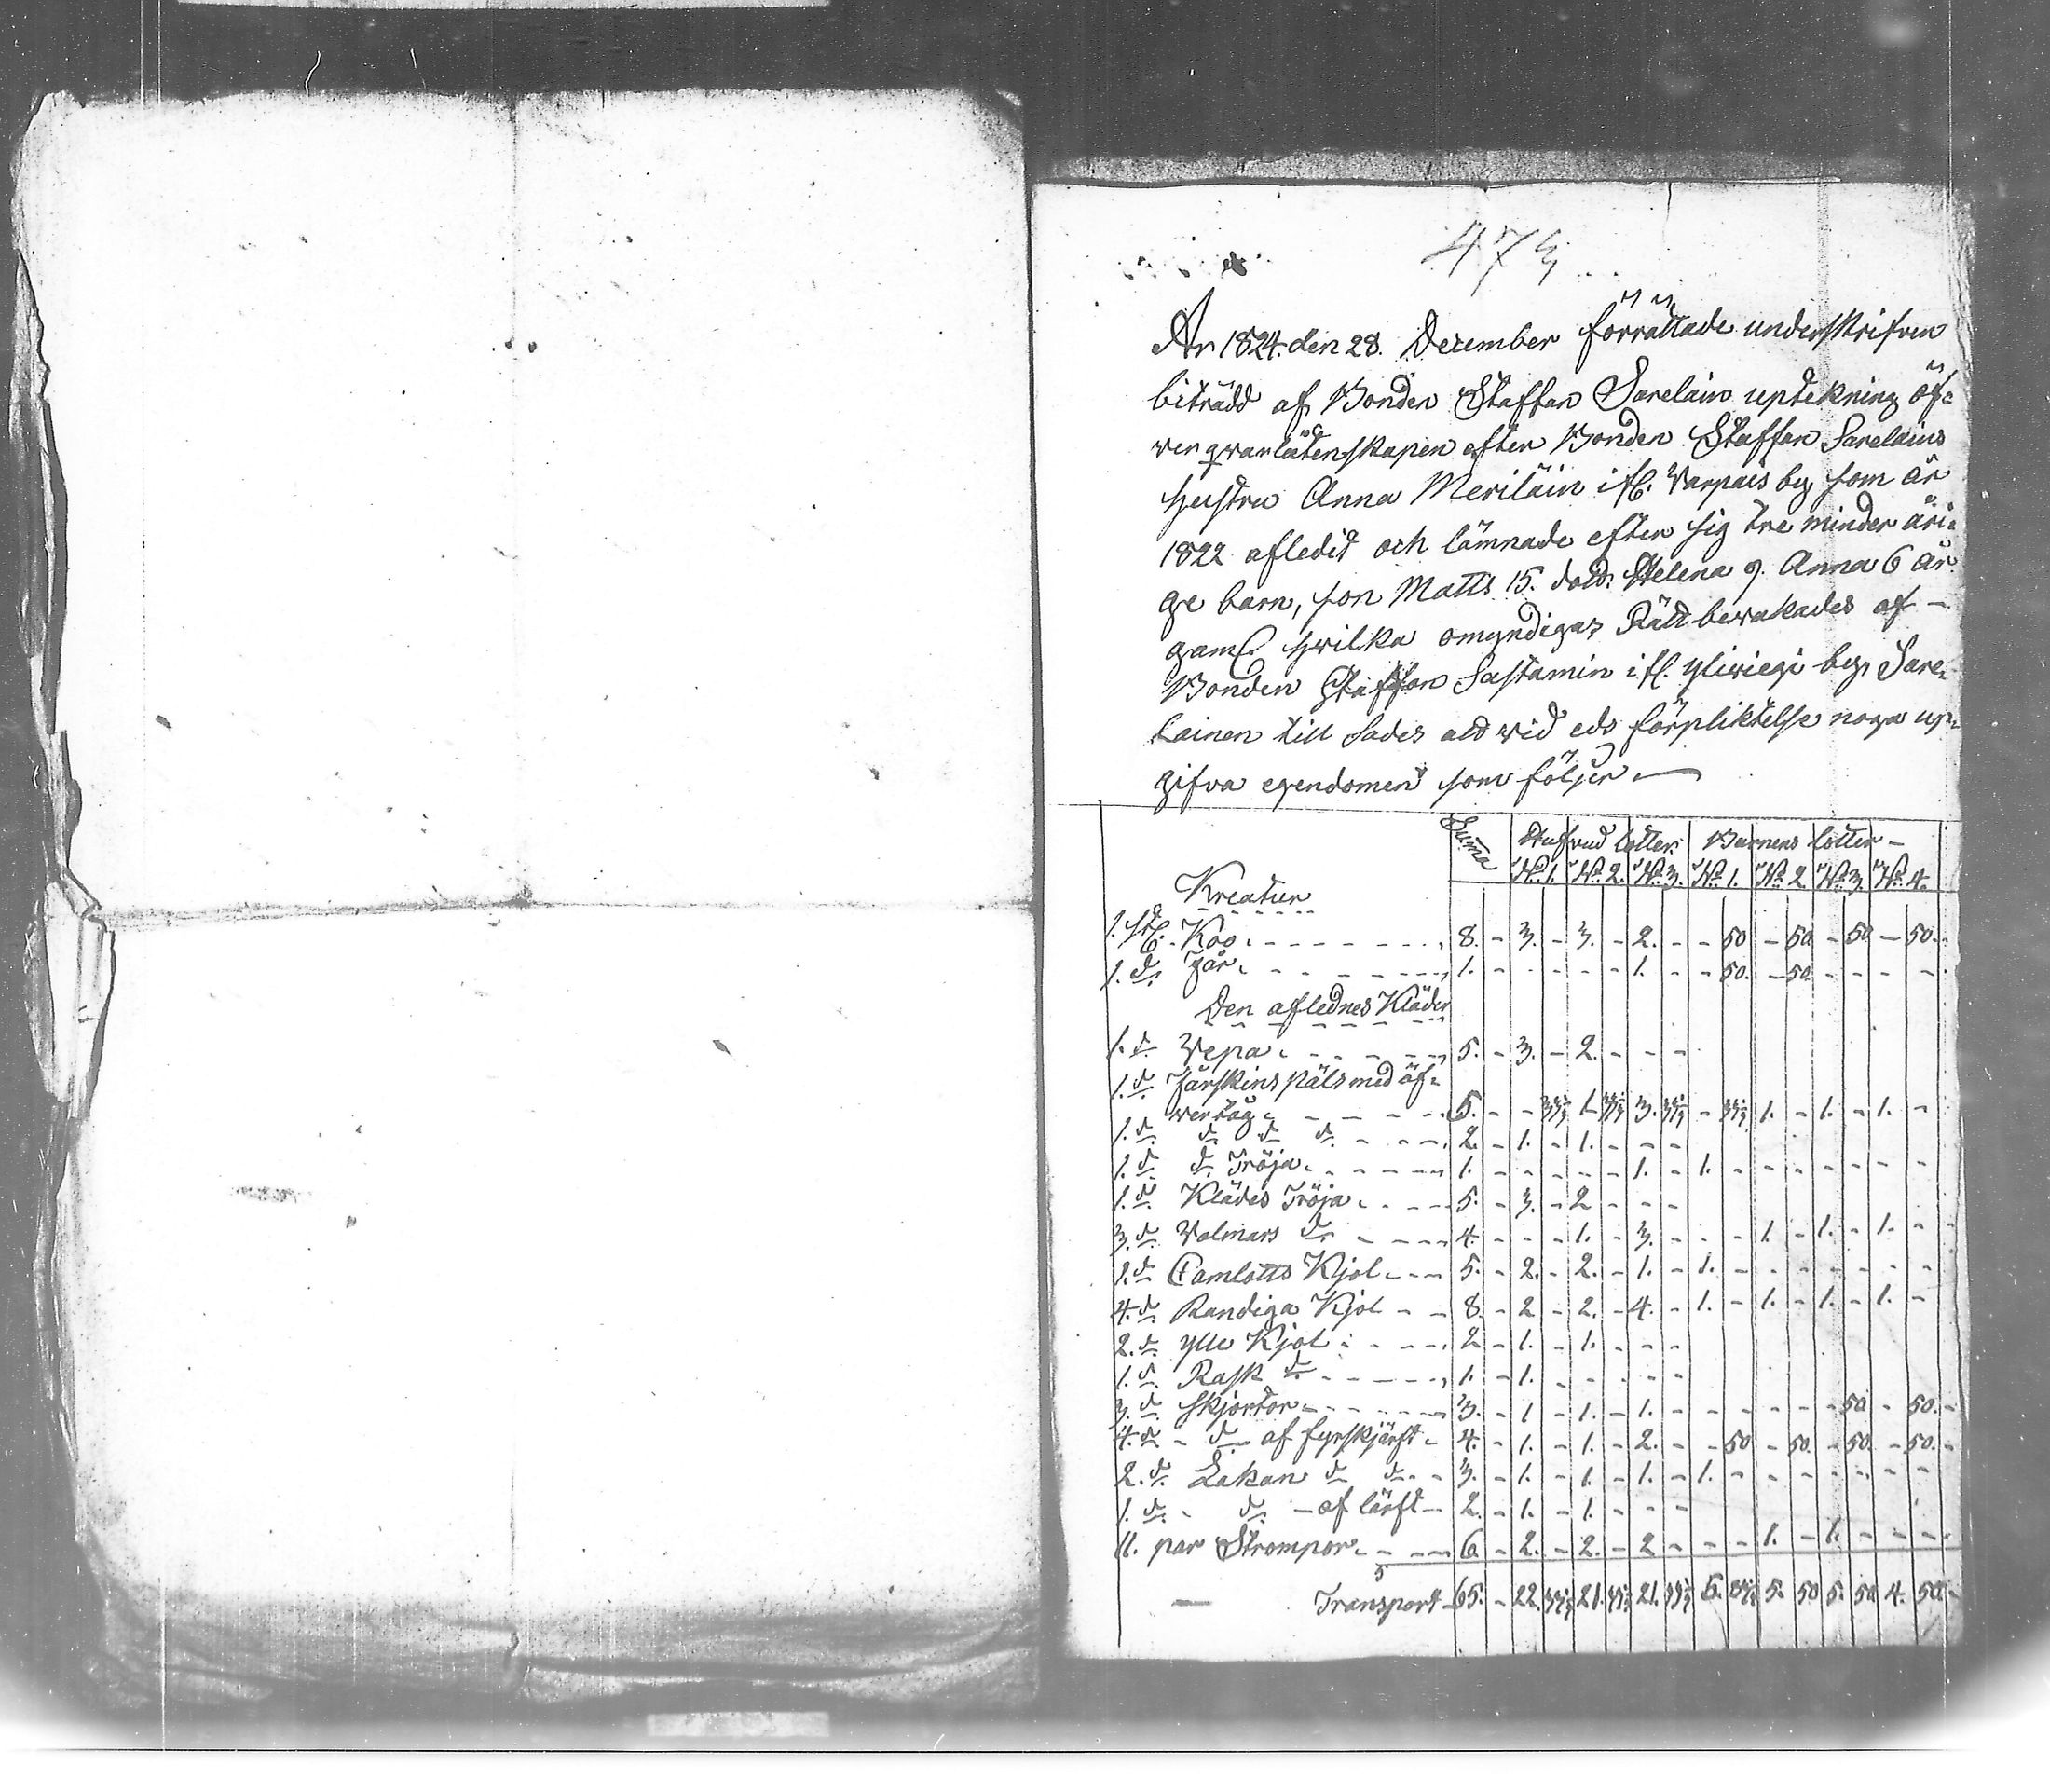 År 1824. den 28. Dezember förrättade underskrifven
biträdd af Bonden Staffan Sarelain uptekning öf=
wer qvarlåtenskapen efter Bonden Staffan Sarelains
hustru Anna Meriläin i fl. Varpais by som år
1822 afledit och lämnade efter sig tre minder åri=
ge barn, son Matts 15. dott. Helena 9. Anna 6 år
gaml. hvilka omyndigas Rätt bevakades af -
Bonden Staffan Sastamin i fl. yliwiegi by, Sare=
lainen till sades att wid eds förpliktelse noga up=
gifva egendomen som följer —
Summa Lotter Barnens Lotter -
No. 1. No. 2. No. 3. No. 1. No. 2 No. 3. No. 4.
Kreatur
1. st. Koo 8. - 3. - 3. - 2. - - 50 - 50 - 50 - 50.
1. d. Får 1. - - - - - 1. - - 50. - 50 - - - -
Den aflednes Kläder
1. d. Vepa 5. - 3. - 2. - - -
1. d. Fårskins päls med öf=
wertåg 5. - - 33⅓ 1. 33⅓ 3. 33⅓ - 33⅓ 1. - 1. - 1. -
1. d. d. d. d. 2. - 1. - 1. - - -
1. d. d. Tröja 1. - - - - - 1. - 1. - - - - - - -
1. d. Klädes Tröja 5. - 3. - 2 - - -
3. d. Valmars d. 4. - - - 1. - 3. - - - 1. - 1. - 1. -
1. d. Camlotts Kjol 5. - 2. - 2. - 1. - 1. - - - - - - -
4. d. Randiga Kjol 8. - 2 - 2. - 4. - 1. - 1. - 1. - 1. -
2. d. ylle Kjol 2 - 1. - 1. - - -
1. d. Rask d. 1. - 1. - - - - -
3. d. skjortor 3. - 1 - 1. - 1. - - - - - - 50 - 50. -
4. d. - d. af fyrskjärft 4. - 1. - 1. - 2. - - 50 - 50. - 50. - 50. -
2. d. Lakan d. d. 3. - 1. - 1. - 1. - 1. - - - - - - -
1. d. - d. - af lärft 2. - 1. - 1. - - -
11. par Strompor 6 - 2. - 2. - 2 - - - 1. - 1. - - -
Transport 65. - 22. 33⅓ 21. 33⅓ 21. 33⅓ 5. 33⅓ 5. 50 5. 50. 4. 50.